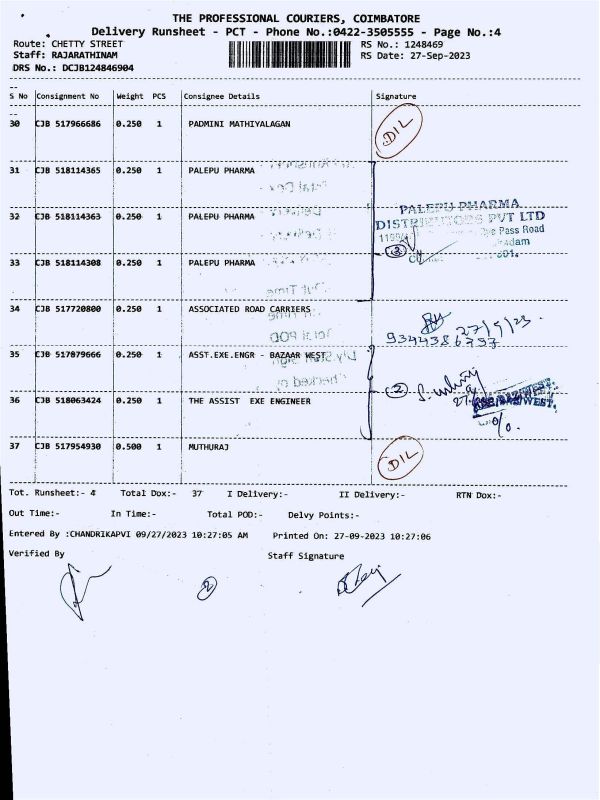 THE PROFESSIONAL COURIERS, COIMBATORE
Delivery Runsheet - PCT - Phone No.:0422-3505555 - Page No.:4
Route: CHETTY STREET RS No.: 1248469
Staff: RAJARATHINAM RS Date: 27-Sep-2023
DRS No.: DCJB124846904
S No Consignment No Weight PCS Consignee Details Signature
30 CJB 517966686 0.250 1 PADMINI MATHIYALAGAN DIL
31 CJB 518114365 0.250 1 PALEPU PHARMA
32 CJB 518114363 0.250 1 PALEPU PHARMA
PALEPU PHARMA
DISTRIBUTORS PVT LTD
Bye Pass Road
33 CJB 518114308 0.250 1 PALEPU PHARMA 3
34 CJB 517720800 0.250 1 ASSOCIATED ROAD CARRIERS
27/9/23
9344386737
35 CJB 517879666 0.250 1 ASST.EXE.ENGR - BAZAAR WEST
36 CJB 518063424 0.250 1 THE ASSIST EXE ENGINEER 2
WEST.
37 CJB 517954930 0.500 1 MUTHURAJ DIL
Tot. Runsheet:- 4 Total Dox:- 37 I Delivery:- II Delivery:- RTN Dox:-
Out Time:- In Time:- Total POD:- Delvy Points:-
Entered By :CHANDRIKAPVI 09/27/2023 10:27:05 AM Printed On: 27-09-2023 10:27:06
Verified By Staff Signature
2